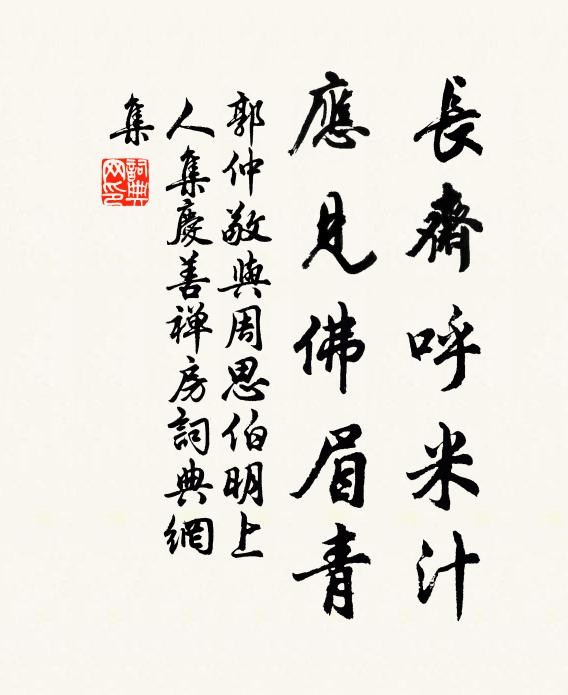 長齋呼米汁
應見佛眉青
郭仲敬與周思伯明上
人集慶善禅房詞典網
集
詞典
网印